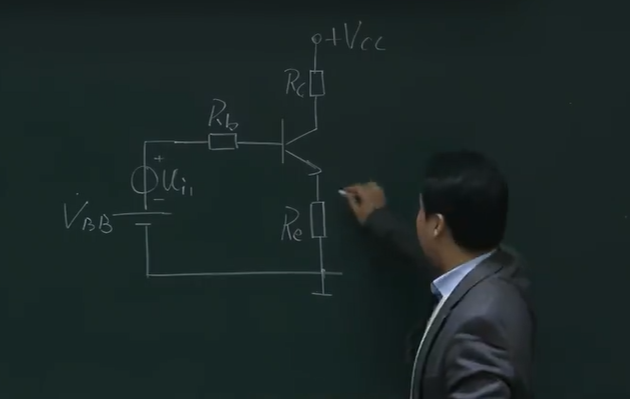 +Vcc
Rc
Rb
+
Ui1
-
VBB
Re